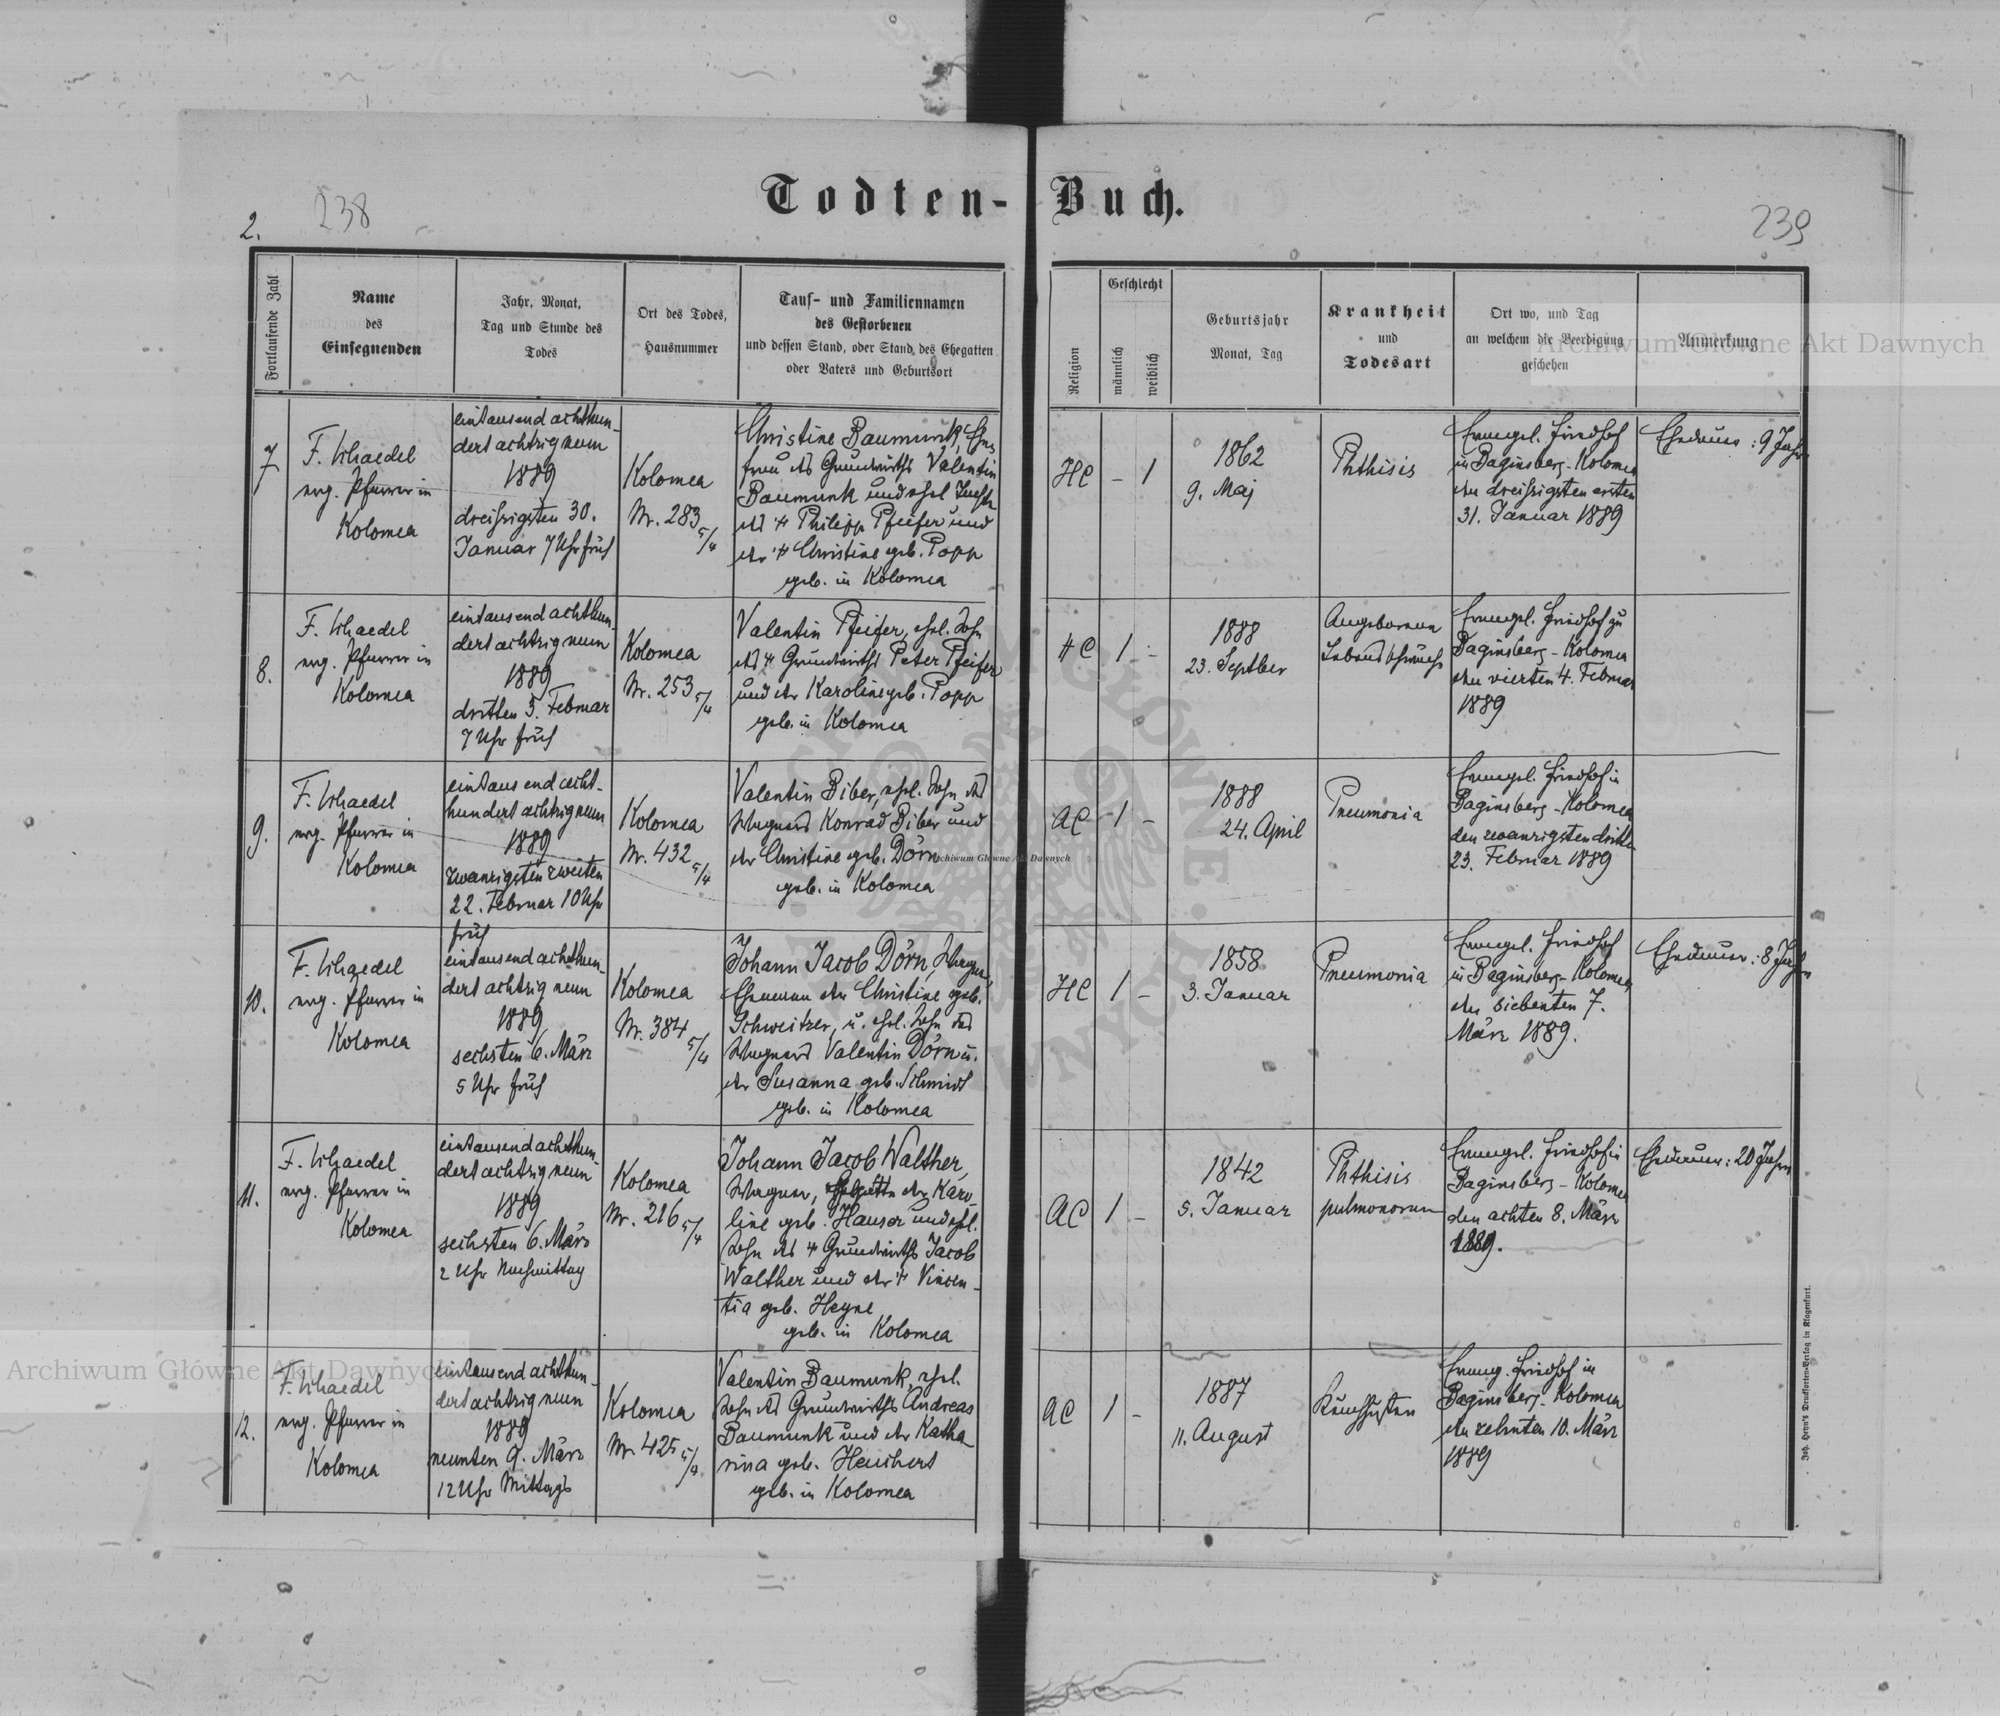 Todten-Buch.
2.
238
239
Fortlaufende Zahl
Name
des
Einsegnenden
Jahr, Monat,
Tag und Stunde des
Todes
Ort des Todes,
Hausnummer
Tauf- und Familiennamen
des Gestorbenen
und dessen Stand, oder Stand des Ehegatten
oder Vaters und Geburtsort
Religion
Geschlecht
männlich
weiblich
Geburtsjahr
Monat, Tag
Krankheit
und
Todesart
Ort wo, und Tag
an welchem die Beerdigung
geschehen
Anmerkung
7
F. Schaedel
evg. Pfarrer in
Kolomea
eintausend achthun-
dert achtzig neun
1889
dreißigsten 30.
Januar 7 Uhr früh
Kolomea
Nr. 283 5/4
Christine Baumunk, Ehe-
frau des Grundwirths Valentin
Baumunk und ehel. Tochter
des † Philipp Pfeifer und
der † Christine geb. Popp
geb. in Kolomea
HC
-
1
1862
9. Maj
Phthisis
Evangel. Friedhof
in Baginsberg-Kolomea
den dreißigsten ersten
31. Januar 1889
Ehedauer: 9 Jahre
8.
F. Schaedel
evg. Pfarrer in
Kolomea
eintausend achthun-
dert achtzig neun
1889
dritten 3. Februar
7 Uhr früh
Kolomea
Nr. 253 5/4
Valentin Pfeifer, ehel. Sohn
des † Grundwirths Peter Pfeifer
und der Karoline geb. Popp
geb. in Kolomea
HC
1
-
1888
23. Septber
Angeborene
Lebensschwäche
Evangel. Friedhof zu
Baginsberg-Kolomea
den vierten 4. Februar
1889
9.
F. Schaedel
evg. Pfarrer in
Kolomea
eintausend acht-
hundert achtzig neun
1889
zwanzigsten zweiten
22. Februar 10 Uhr
früh
Kolomea
Nr. 432 5/4
Valentin Biber, ehel. Sohn des
Wagners Konrad Biber und
der Christine geb. Dörn
geb. in Kolomea
AC
1
-
1888
24. April
Pneumonia
Evangel. Friedhof in
Baginsberg-Kolomea
den zwanzigsten dritten
23. Februar 1889
10.
F. Schaedel
evg. Pfarrer in
Kolomea
eintausend achthun-
dert achtzig neun
1889
sechsten 6. März
5 Uhr früh
Kolomea
Nr. 384 5/4
Johann Jacob Dörn, Wagner,
Ehemann der Christine geb.
Schweitzer, u. ehel. Sohn des
Wagners Valentin Dörn u.
der Susanna geb. Schmidt
geb. in Kolomea
HC
1
-
1858
3. Januar
Pneumonia
Evangel. Friedhof
in Baginsberg-Kolomea
den siebenten 7.
März 1889.
Ehedauer: 8 Jahre
11.
F. Schaedel
evg. Pfarrer in
Kolomea
eintausend achthun-
dert achtzig neun
1889
sechsten 6. März
2 Uhr Nachmittag
Kolomea
Nr. 216 5/4
Johann Jacob Walther,
Wagner, Ehegatte der Karo-
line geb. Hauser und ehel.
Sohn des † Grundwirths Jacob
Walther und der † Vincen-
tia geb. Heyne
geb. in Kolomea
AC
1
-
1842
5. Januar
Phthisis
pulmonorum
Evangel. Friedhof in
Baginsberg-Kolomea
den achten 8. März
1889.
Ehedauer: 20 Jahre
12.
F. Schaedel
evg. Pfarrer in
Kolomea
eintausend achthun-
dert achtzig neun
1889
neunten 9. März
12 Uhr Mittags
Kolomea
Nr. 425 5/4
Valentin Baumunk, ehel.
Sohn des Grundwirths Andreas
Baumunk und der Katha-
rina geb. Heuchert
geb. in Kolomea
AC
1
-
1887
11. August
Keuchhusten
Evang. Friedhof in
Baginsberg-Kolomea
den zehnten 10. März
1889
Joh. Heyn's Drucksorten-Verlag in Klagenfurt.
Archiwum Główne Akt Dawnych
Archiwum Główne Akt Dawnych
Archiwum Główne Akt Dawnych